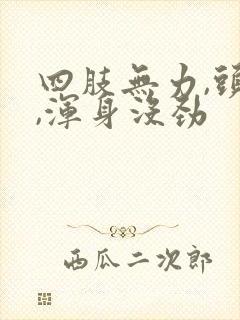 四肢無力,頭
,渾身沒勁
西瓜二次郎